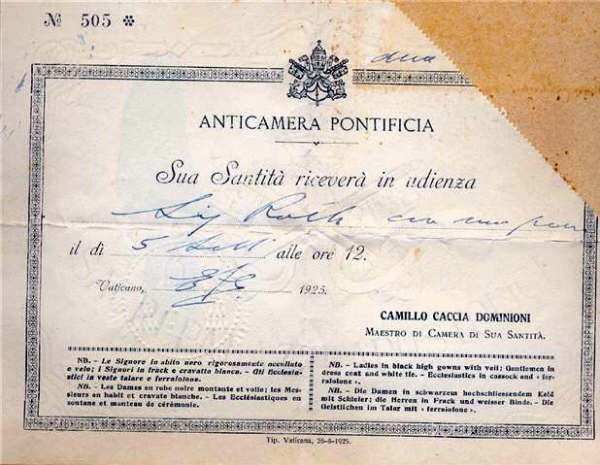 № 505 *
ANTICAMERA PONTIFICIA
Sua Santità riceverà in udienza
Sig Roth con una
il dì 5 Sett alle ore 12.
Vaticano, 1925.
CAMILLO CACCIA DOMINIONI
MAESTRO DI CAMERA DI SUA SANTITÀ.
NB. - Le Signore in abito nero rigorosamente accollato
e velo; i Signori in frack e cravatta bianca. - Gli Ecclesia-
stici in veste talare e ferraiolone.
NB. - Les Dames en robe noire montante et voile; les Mes-
sieurs en habit et cravate blanche. - Les Ecclésiastiques en
soutane et manteau de cérémonie.
NB. - Ladies in black high gowns with veil; Gentlemen in
dress coat and white tie. - Ecclesiastics in cassock and « fer-
raiolone ».
NB. - Die Damen in schwarzem hochschliessendem Keld
mit Schleier; die Herren in Frack und weisser Binde. - Die
Geistlichen im Talar mit « ferraiolone ».
Tip. Vaticana, 26-8-1925.